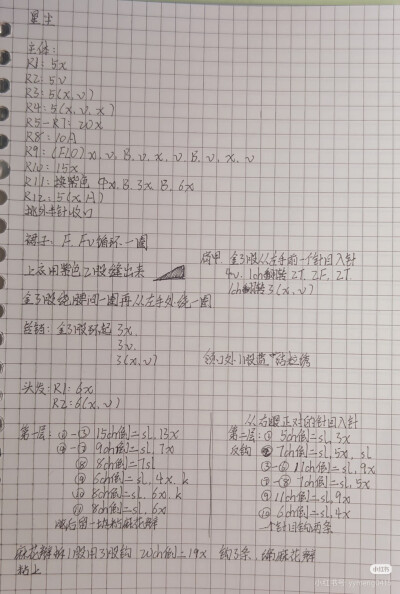 星尘
主体:
R1: 5x
R2: 5v
R3: 5(x, v)
R4: 5(v, v, x)
R5-R7: 20x
R8: 10A
R9: (FLO) x, v, B, v, x, v, B, v, x, v
R10: 15x
R11: 换紫色 4x, B, 3x, B, 6x
R12: 5(x, A)
裙子: F, FV循环一圈
上衣用紫色2股缝出来
肩甲: 金3股从左手前一个针目入针
4v, 1ch翻转 2T, 2F, 2T
1ch翻转 3(x, v)
金3股绕腰间一圈再从左手处绕一圈
金3股环起 3x,
3v,
3(x, v)
头发: R1: 6x
R2: 6(x, v)
从右眼正对的针目入针
第一层: ①-③ 15ch倒=sl, 13x
④-⑦ 9ch倒=sl, 7x
⑧ 8ch倒=7sl
⑨ 6ch倒=sl, 4x, k
⑩ 8ch倒=sl, 6x, k
⑫ 6ch倒=sl, 4x
第二层: ① 5ch倒=sl, 3x
反钩 ② 7ch倒=sl, 5x, sl
③-⑥ 11ch倒=sl, 9x
⑦-⑧ 7ch倒=sl, 5x
⑨ 11ch倒=sl, 9x
⑩ 6ch倒=sl, 4x
一个针目钩两条
麻花辫拆1股用3股钩 20ch倒=19x 钩3条, 编麻花辫
粘上
小红书